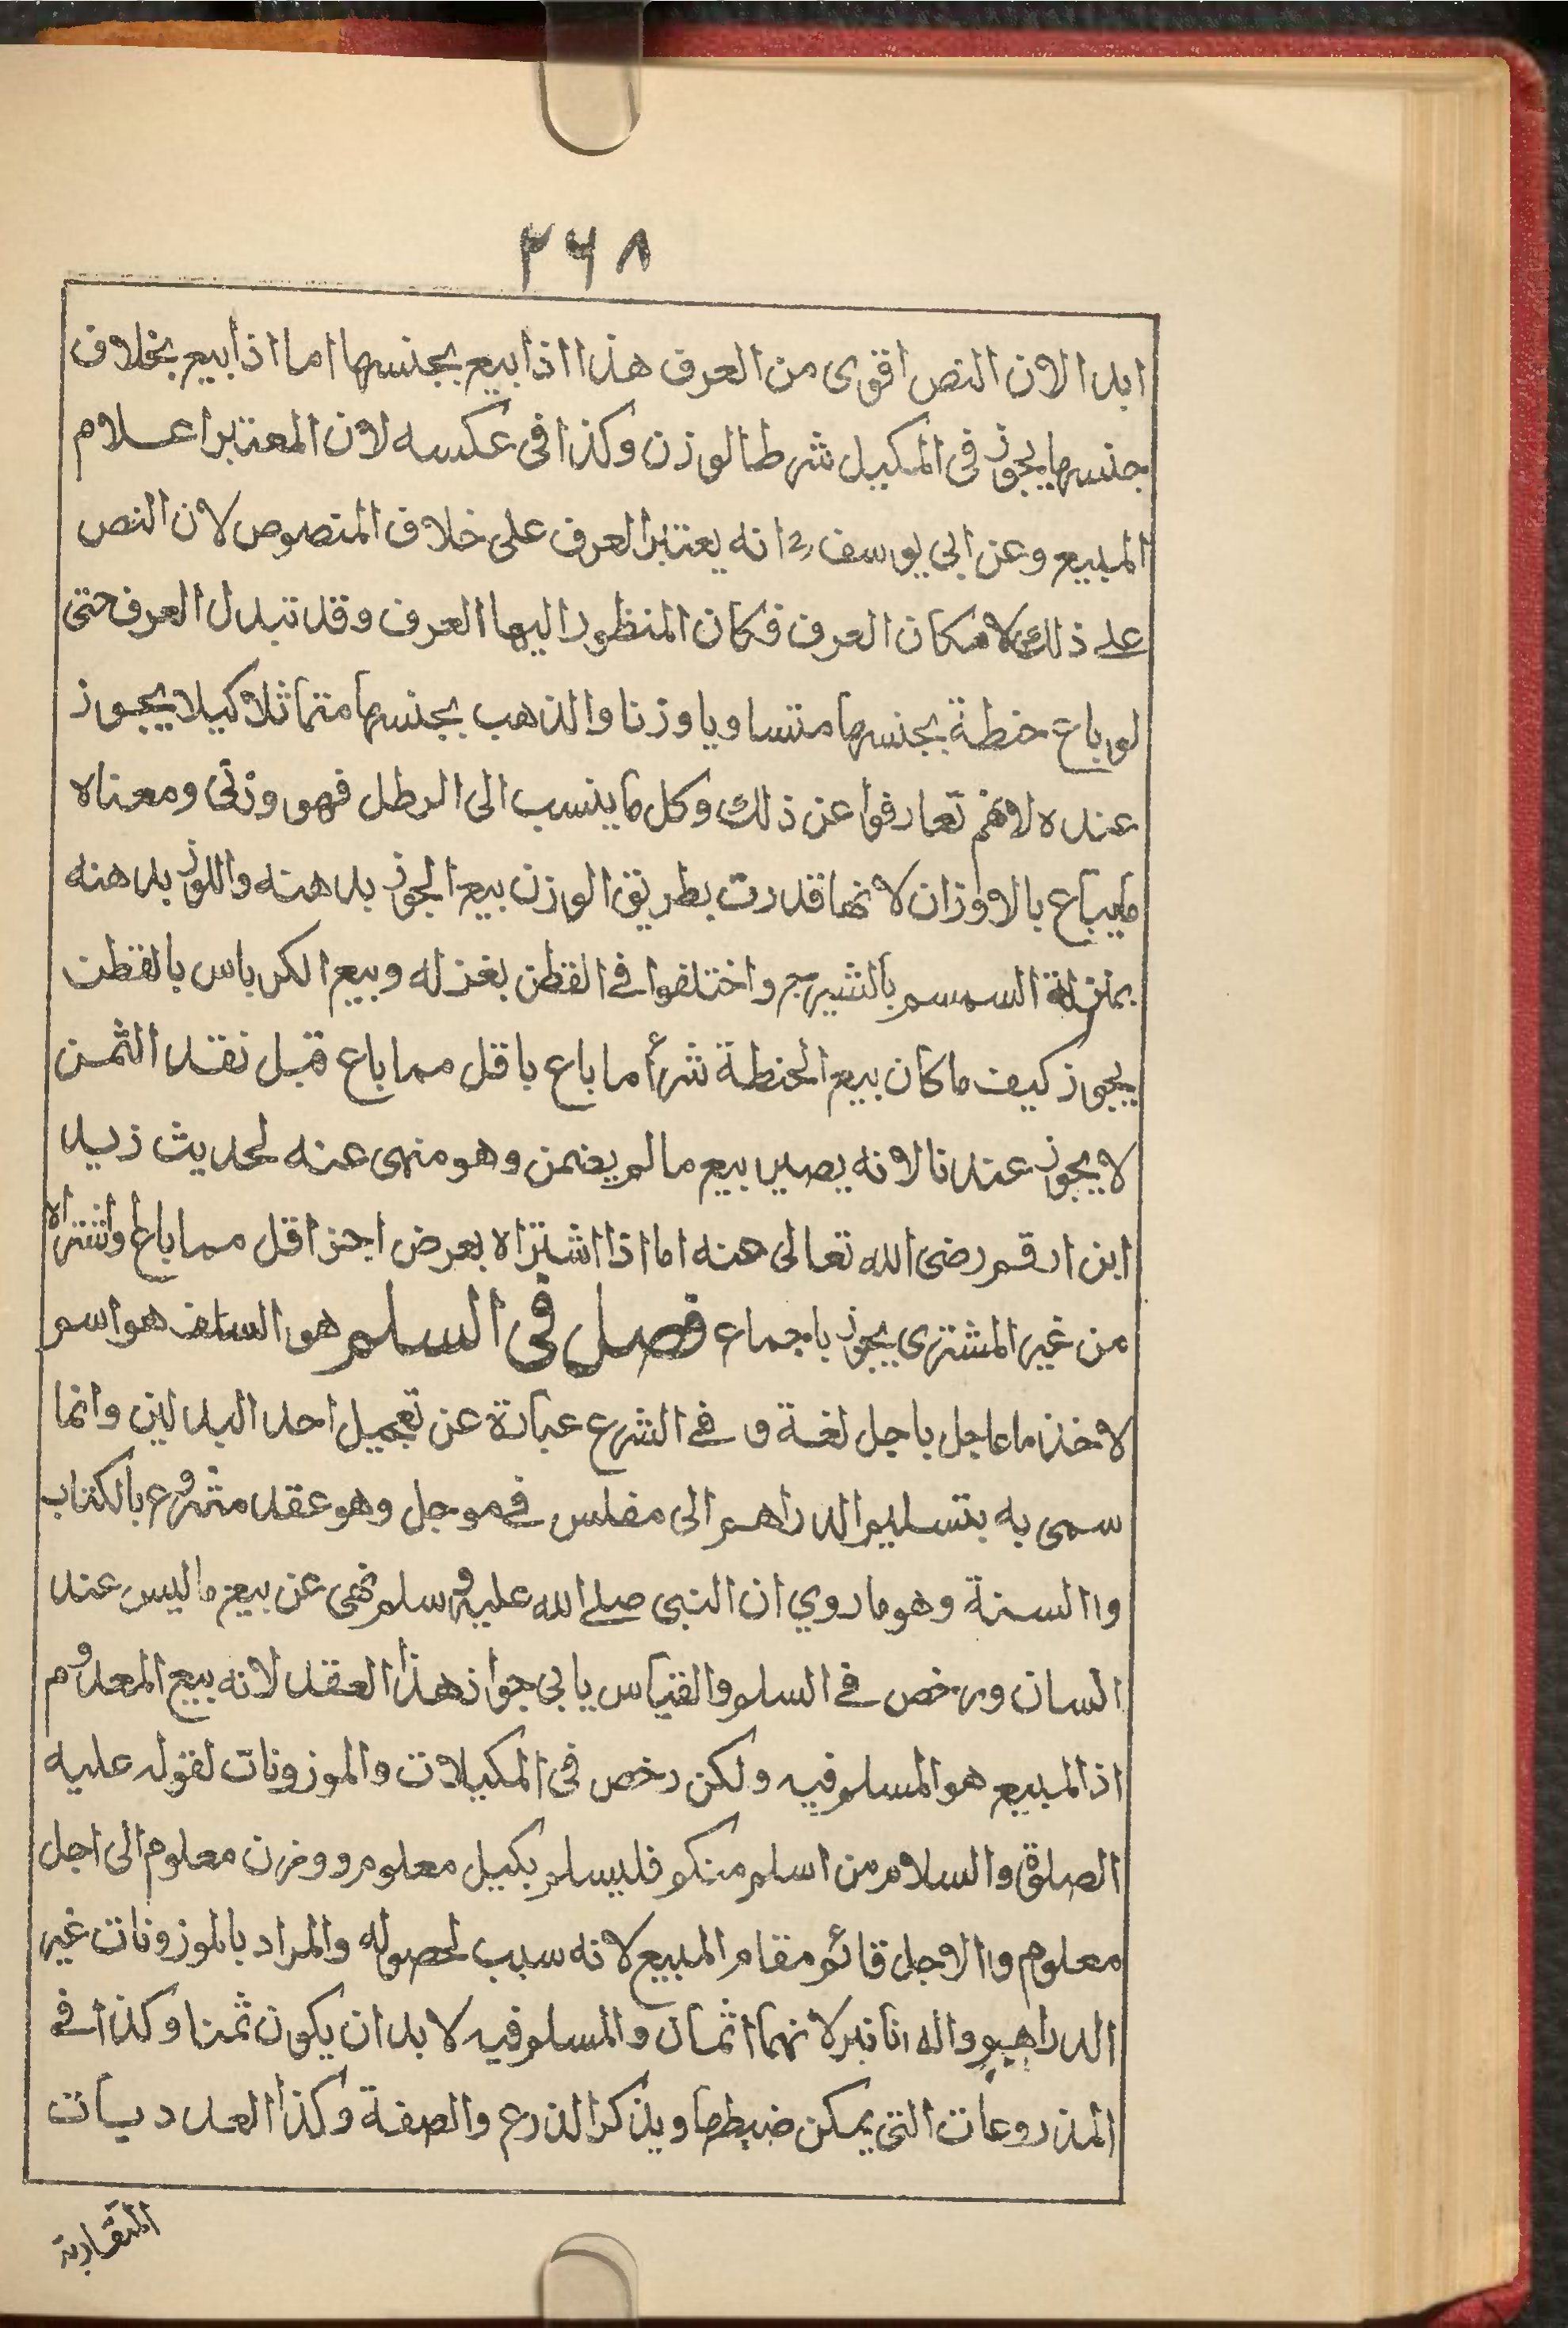 ٢٦٨
ابدا لان النص اقوى من العرف هذا اذا بيع بجنسها اما اذا بيع بخلاف
جنسها يجوز في المكيل شرط الوزن وكذا في عكسه لان المعتبر اعلام
المبيع وعن ابي يوسف رح انه يعتبر العرف على خلاف المنصوص لان النص
على ذلك لامكان العرف فكان المنظور اليها العرف وقد تبدل العرف حتى
لو باع حنطة بجنسها متساويا وزنا والذهب بجنسها متماثلا كيلا يجوز
عنده لانهم تعارفوا عن ذلك وكل ما ينسب الى الرطل فهو وزني ومعناه
ما يباع بالاوزان لانها قدرت بطريق الوزن بيع الجوز بدهنه واللوز بدهنه
بمنزلة السمسم بالشيرج واختلفوا في القطن بغزله وبيع الكرباس بالقطن
يجوز كيف ما كان بيع الحنطة شرأ ما باع باقل مما باع قبل نقد الثمن
لا يجوز عندنا لانه يصير بيع ما لم يضمن وهو منهى عنه لحديث زيد
ابن ارقم رضى الله تعالى عنه اما اذا اشتراه بعرض اجز اقل مما باع واشتراه
من غير المشترى يجوز باجماع فصل في السلم هو السلف هو اسم
لاخذ ما عاجل باجل لغة و في الشرع عبارة عن تعجيل احد البدلين وانما
سمى به بتسليم الدراهم الى مفلس في موجل وهو عقد مشروع بالكتاب
واالسنة وهو ما روي ان النبى صلى الله عليه وسلم نهى عن بيع ما ليس عند
السان ورخص في السلم والقياس يابى جواز هذا العقد لانه بيع المعدوم
اذ المبيع هو المسلم فيه ولكن رخص في المكيلات والموزونات لقوله عليه
الصلوة والسلام من اسلم منكم فليسلم بكيل معلوم ووزن معلوم الى اجل
معلوم واالاجل قائم مقام المبيع لانه سبب لحصوله والمراد بالموزونات غير
الدراهيم والدنانير لانهما اثمان والمسلم فيه لا بد ان يكون ثمنا وكذا في
المذروعات التى يمكن ضبطها ويذكر الذرع والصفة وكذا العدديات
المتقاربة